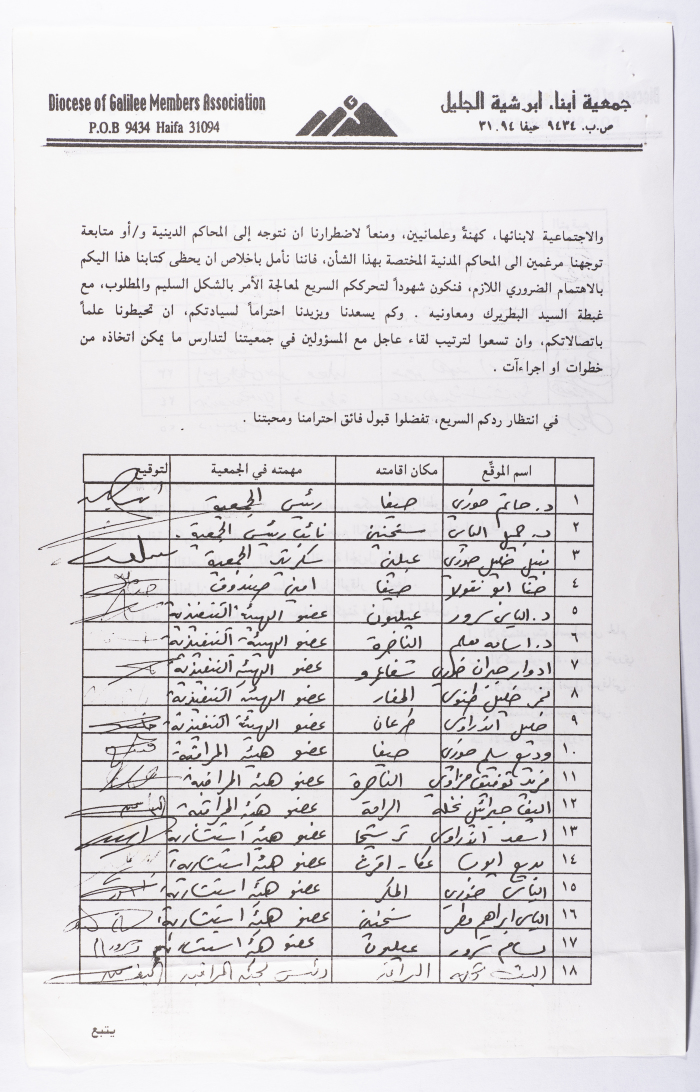 Diocese of Galilee Members Association
جمعية أبناء ابرشية الجليل
P.O.B 9434 Haifa 31094
ص.ب. ٩٤٣٤ حيفا ٣١.٩٤
والاجتماعية لابنائها، كهنةً وعلمانيين، ومنعاً لاضطرارنا ان نتوجه إلى المحاكم الدينية و/أو متابعة
توجهنا مرغمين الى المحاكم المدنية المختصة بهذا الشأن، فاننا نأمل باخلاص ان يحظى كتابنا هذا اليكم
بالاهتمام الضروري اللازم، فنكون شهوداً لتحرككم السريع لمعالجة الأمر بالشكل السليم والمطلوب، مع
غبطة السيد البطريرك ومعاونيه . وكم يسعدنا ويزيدنا احتراماً لسيادتكم، ان تحيطونا علماً
باتصالاتكم، وان تسعوا لترتيب لقاء عاجل مع المسؤولين في جمعيتنا لتدارس ما يمكن اتخاذه من
خطوات او اجراءآت .
في انتظار ردكم السريع، تفضلوا قبول فائق احترامنا ومحبتنا .
اسم الموقّع مكان اقامته مهمته في الجمعية التوقيع
١ د. حاتم خوري حيفا رئيس الجمعية
٢ د. الياس سخنين نائب رئيس الجمعية .
٣ نبيل خليل خوري عبلين سكرتير الجمعية
٤ حنا ابو نقولا حيفا امين صندوق
٥ د. الياس سرور عيلبون عضو الهيئة التنفيذية
٦ د. اسامه معلم الناخرة عضو الهيئة التنفيذية
٧ ادوار جبران خوري شفاعمرو عضو الهيئة التنفيذية
٨ نمر خليل عضو الهيئة التنفيذية
٩ خليل اندراوس طرعان عضو الهيئة التنفيذية
١٠ وديع سليم خوري حيفا عضو هيئة المراقبة
١١ فريد توفيق الناصرة عضو هيئة المراقبة
١٢ جبرائيل نخله الرامة عضو هيئة المراقبة
١٣ اسعد اندراوس ترشيحا عضو هيئة استشارية
١٤ بديع ايوب عكا - اقرث عضو هيئة استشارية
١٥ الياس خوري المكر عضو هيئة استشارية
١٦ الياس ابراهيم مطر سخنين عضو هيئة استشارية
١٧ بسام سرور عيلبون عضو هيئة استشارية
١٨ الرامة رئيس لجنة المراقبة
يتبع